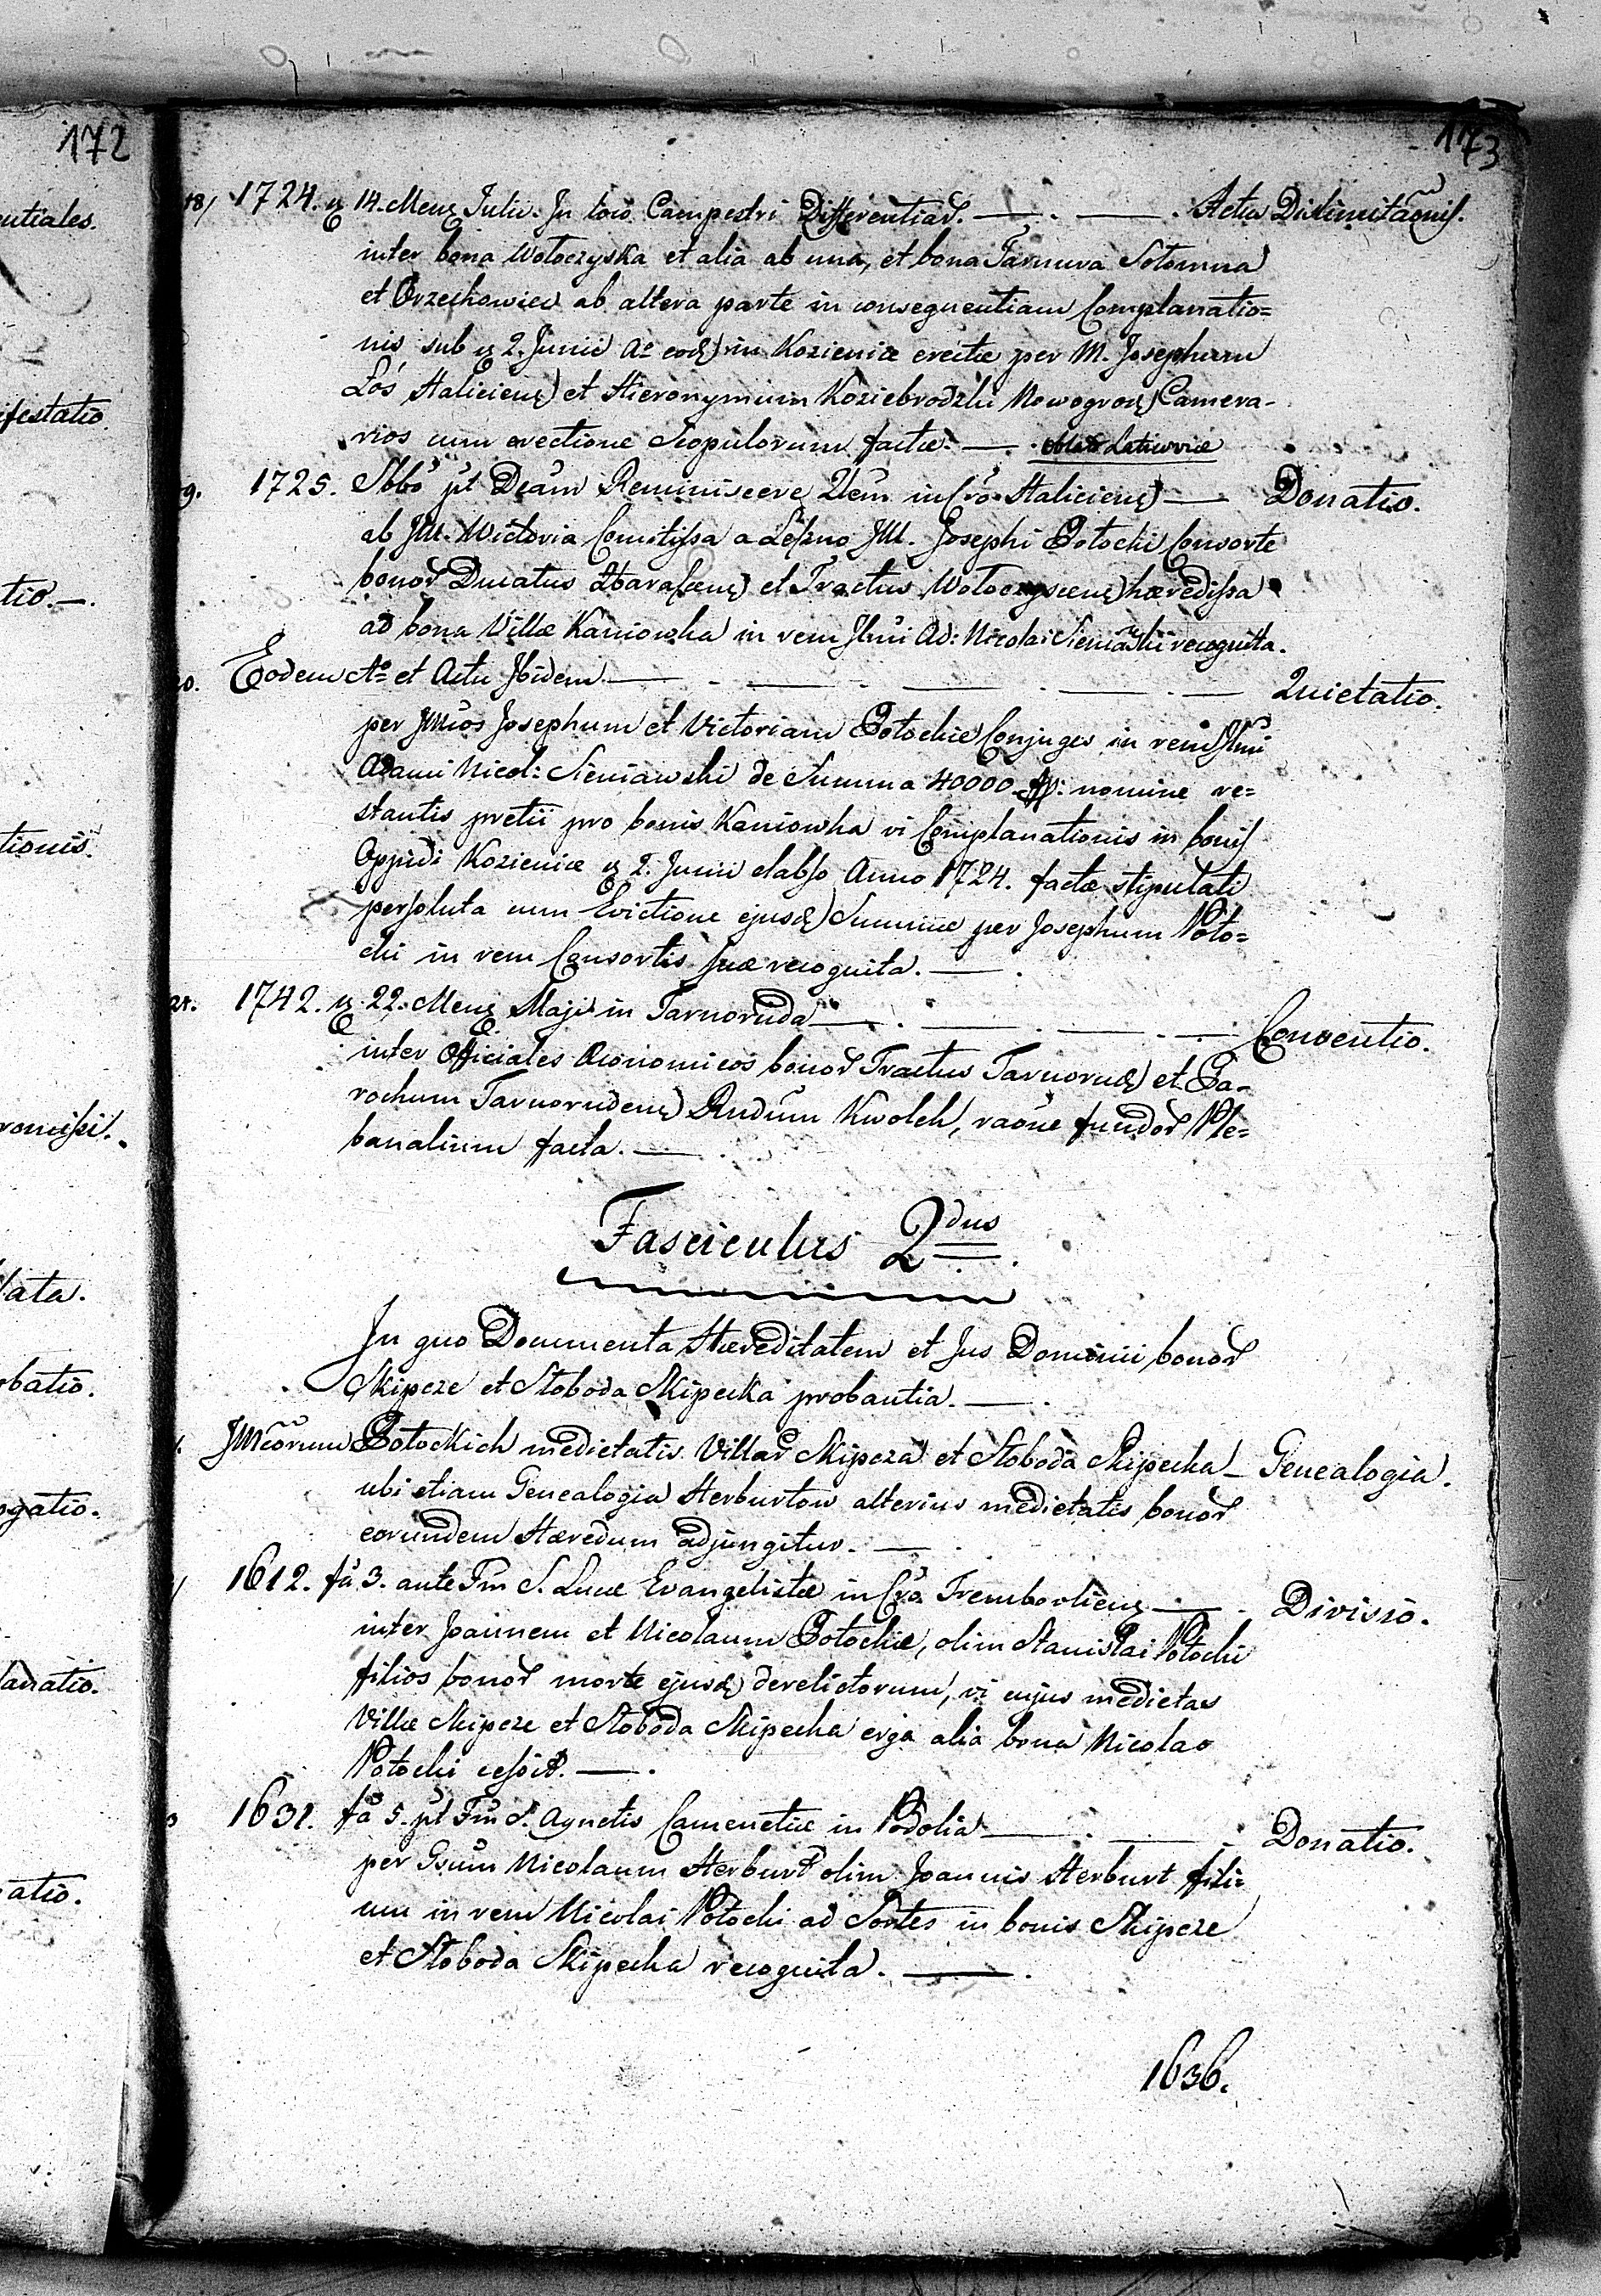 172
173
utiales.
ifestatio.
tio.—.
tionis.
romissi.
lata.
obatio.
ogatio.
anatio.
atio.
18/ 1724. 14. Mens Julii. In loco Campestri Differentiar. — . — . Actus Dislimitaonis.
inter bona Wołoczyska et alia ab una, et bona Tarnura Sołomna
et Orzechowiec ab altera parte in consequentiam Complanatio=
nis sub 2. Junii Ao eod in Kozienice erectæ per M. Josephum
Łoś Haliciens et Hieronymum Koziebrodzki Nowogrods Camera-
rios cum erectione Scopulorum factæ. —
9. 1725. Sbbo pt Dcam Reminiscere Qem in Cro Haliciens — Donatio.
ab JM. Wictoria Comitissa a Leszno JM. Josephi Potocki Consorte
bonor Ducatus Zbarascens et Tractus Wołoczyscens hæredissa
ad bona Villæ Kaniowka in rem Illmi Ad: Nicolai Sieniawski recognita.
20. Eodem Ao et Actu Ibidem. — . — . — . — . — Quietatio.
per JMios Josephum et Victoriam Potockie Conjuges in rem Illmi
Adami Nicol: Sieniawski de Summa 40000 fp: nomine re=
stantis pretii pro bonis Kaniowka vi Complanationis in bonis
Oppidi Kozienice 2. Junii elapso Anno 1724. factæ stipulati
persoluta cum Evictione ejusd Summæ per Josephum Poto=
cki in rem Consortis suæ recognita. — .
21. 1742. 22. Mens Maji in Tarnoruda — . — . — . — Conventio.
inter Officiales Œconomicos bonor Tractus Tarnorud et Pa-
rochum Tarnorudens Rndum Kwolek, raone fundor Ple=
banalium facta. —
Fasciculus 2dus
In quo Documenta Hæreditatem et Jus Dominii bonor
Skipcze et Słoboda Skipecka probantia. — .
JMcorum Potockich medietatis Villar Skipcza et Słoboda Skipecka — Genealogia.
ubi etiam Genealogia Herburtow alterius medietatis bonor
eorundem Hæredum adjungitur. —
1612. fa 3. ante Fm S. Lucæ Evangelistæ in Cro Trembovliens — . Divisio.
inter Joannem et Nicolaum Potockie, olim Stanislai Potocki
filios bonor morte ejusd derelictorum, vi cujus medietas
Villæ Skipcze et Słoboda Skipecka erga alia bona Nicolao
Potocki cessit. — .
3 1631. fa 5. pt Fm S. Agnetis Cameneciæ in Podolia — . — . Donatio.
per Gsum Nicolaum Herburt olim Joannis Herburt fili=
um in rem Nicolai Potocki ad Sortes in bonis Skipcze
et Słoboda Skipecka recognita. — .
1636.